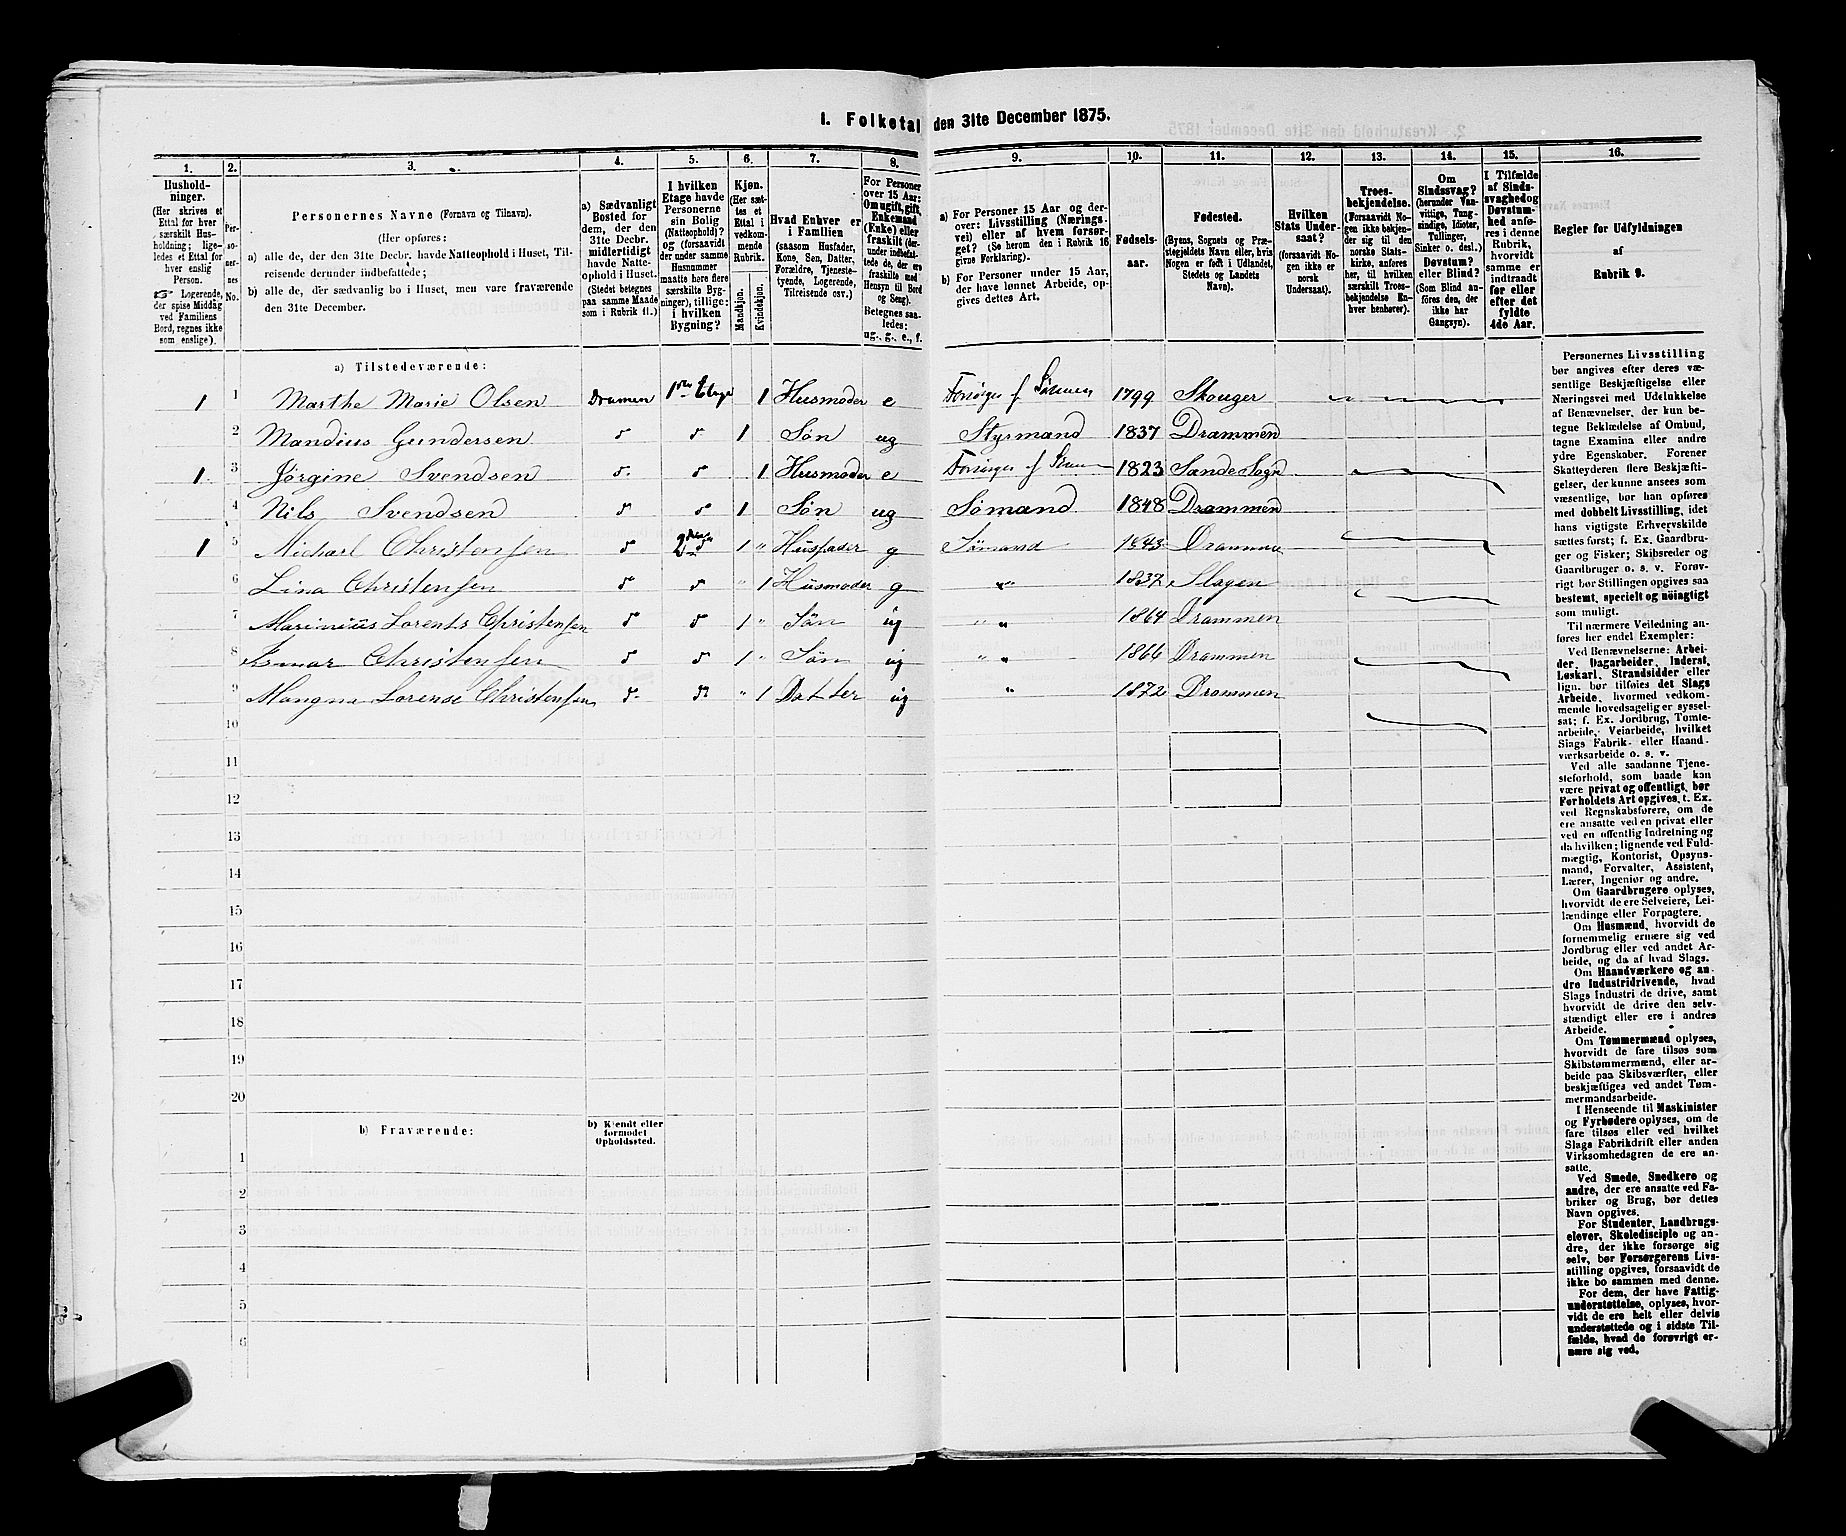 1. Folketal den 31te December 1875.
1. 2. 3. 4. 5. 6. 7. 8. 9. 10. 11. 12. 13. 14. 15. 16.
Hushold-
ninger.
(Her skrives et
Ettal for hver
særskilt Hus-
holdning; lige-
ledes et Ettal for
hver enslig
Person.
☞ Logerende,
der spise Middag
ved Familiens
Bord, regnes ikke
som enslige).
Per-
so-
ner-
nes
No.
Personernes Navne (Fornavn og Tilnavn).
(Her opføres:
a) alle de, der den 31te Decbr. havde Natteophold i Huset, Til-
reisende derunder indbefattede;
b) alle de, der sædvanlig bo i Huset, men vare fraværende
den 31te December.
a) Sædvanligt
Bosted for
dem, der den
31te Decbr.
midlertidigt
havde Natte-
ophold i Huset.
(Stedet betegnes
paa samme Maade
som i Rubrik 11.)
I hvilken
Etage havde
Personerne
sin Bolig
(Natteophold)?
og (forsaavidt
der under samme
Husnummer
maatte høre flere
særskilte Byg-
ninger), tillige:
i hvilken
Bygning?
Kjøn.
(Her sæt-
tes et
Ettal i
vedkom-
mende
Rubrik.
Mandkjøn.
Kvindekjøn.
Hvad Enhver er
i Familien
(saasom Husfader,
Kone, Søn, Datter,
Forældre, Tjeneste-
tyende, Logerende,
Tilreisende osv.)
For Personer
over 15 Aar:
Om ugift, gift,
Enkemand
(Enke) eller
fraskilt (der-
under indbefat-
tede de, der ere
fraskilte med
Hensyn til Bord
og Seng).
Betegnes saa-
ledes:
ug., g., e., f.
a) For Personer 15 Aar og der-
over: Livsstilling (Nærings-
vei) eller af hvem forsør-
get? (Se herom den i Rubrik 16
givne Forklaring).
b) For Personer under 15 Aar,
der have lønnet Arbeide, op-
gives dettes Art.
Fødsels-
aar.
Fødested.
(Byens, Sognets og Præ-
stegjeldets Navn eller, hvis
Nogen er født i Udlandet,
Stedets og Landets
Navn).
Hvilken
Stats Under-
saat?
(forsaavidt No-
gen ikke er
norsk
Undersaat).
Troes-
bekjendelse.
(Forsaavidt No-
gen ikke bekjen-
der sig til den
norske Stats-
kirke, anføres
her, til hvilken
særskilt Troes-
bekjendelse En-
hver henhører).
Om
Sindssvag?
(herunder Van-
vittige, Tung-
sindige, Idioter,
Tullinger,
Sinker o. desl.)
Døvstum?
eller Blind?
(Som Blind an-
føres den, der
ikke har
Gangsyn).
I Tilfælde
af Sinds-
svaghed og
Døvstum-
hed anfø-
res i denne
Rubrik,
hvorvidt
samme er
indtraadt
før eller
efter det
fyldte
4de Aar.
Regler for Udfyldningen
af
Rubrik 9.
a) Tilstedeværende:
1 1 Marthe Marie Olsen Dramen 1ste Etage 1 Husmoder e Forsørges af Sönnen 1799 Skouger
2 Mandius Gundersen 1 Søn ug Styrmand 1837 Drammen
1 3 Jørgine Svendsen 1 Husmoder e Forsørges af 1823 Sande Sogn
4 Nils Svendsen 1 Søn ug Sømand 1848 Drammen
1 5 Michael Christensen 2 1 " Husfader g Sømand 1843 Drammen
6 Lina Christensen " 1 Husmoder g " 1837 Slagen
7 Marinius Lorents Christensen 1 " Søn ug " " 1864 Drammen
8 Christensen 1 " Søn ug " " 1866 Drammen
9 Mangna Lorense Christensen " 1 Datter ug " 1872 Drammen
10
11
12
13
14
15
16
17
18
19
20
b) Fraværende:
b) Kjendt eller
formodet
Opholdssted.
1
2
3
4
5
6
Personernes Livsstilling
bør angives efter deres væ-
sentlige Beskjæftigelse eller
Næringsvei med Udelukkelse
af Benævnelser, der kun be-
tegne Beklædelse af Ombud,
tagne Examina eller andre
ydre Egenskaber. Forener
Skatteyderen flere Beskjæfti-
gelser, der kunne ansees som
væsentlige, bør han opføres
med dobbelt Livsstilling, idet
hans vigtigste Erhvervskilde
sættes først; f. Ex. Gaardbru-
ger og Fisker; Skibsreder og
Gaardbruger o. s. v. Forøv-
rigt bør Stillingen opgives saa
bestemt, specielt og nöiagtigt
som muligt.
Til nærmere Veiledning an-
føres her endel Exempler:
Ved Benævnelserne: Arbei-
der, Dagarbeider, Inderst,
Løskarl, Strandsidder eller
lign. bør tilføies det Slags
Arbeide, hvormed vedkom-
mende hovedsagelig er syssel-
sat; f. Ex. Jordbrug, Tomte-
arbeide, Veiarbeide, hvilket
Slags Fabrik- eller Haand-
værksarbeide o. s. v.
Ved alle saadanne Tjene-
steforhold, som baade kan
være privat og offentligt, bør
Forholdets Art opgives, t. Ex.
ved Regnskabsførere, om de
ere ansatte ved en privat eller
ved en offentlig Indretning og
da hvilken; lignende ved Fuld-
mægtig, Kontorist, Opsyns-
mand, Forvalter, Assistent,
Lærer, Ingeniør og andre.
Om Gaardbrugere oplyses,
hvorvidt de ere Selveiere, Lei-
lændinge eller Forpagtere.
Om Husmænd, hvorvidt de
fornemmelig ernære sig ved
Jordbrug eller ved andet Ar-
beide, og da af hvad Slags.
Om Haandværkere og an-
dre Industridrivende, hvad
Slags Industri de drive, samt
hvorvidt de drive den selv-
stændigt eller ere i andres
Arbeide.
Om Tømmermænd oplyses,
hvorvidt de fare tilsøs som
Skibstømmermænd, eller ar-
beide paa Skibsværfter, eller
beskjæftiges ved andet Tøm-
mermandsarbeide.
I Henseende til Maskinister
og Fyrbødere oplyses, om de
fare tilsøs eller ved hvilket
Slags Fabrikdrift eller anden
Virksomhedsgren de ere an-
satte.
Ved Smede, Snedkere og
andre, der ere ansatte ved Fa-
briker og Brug, bør dettes
Navn opgives.
For Studenter, Landbrugs-
elever, Skoledisciple og an-
dre, der ikke forsørge sig
selv, bør Forsørgerens Livs-
stilling opgives, forsaavidt de
ikke bo sammen med denne.
For dem, der have Fattig-
understøttelse, oplyses, hvor-
vidt de ere helt eller delvis
understøttede og i sidste Til-
fælde, hvad de forøvrigt er-
nære sig ved.